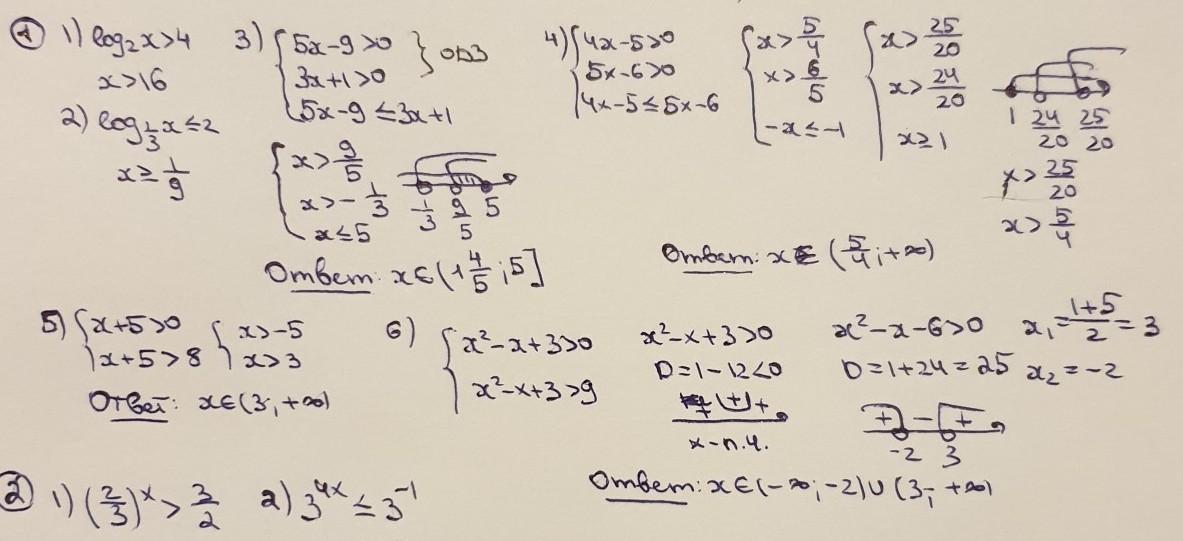 ① 1) log₂x>4
x>16
2) log_{1/3} x≤2
x≥1/9
3) {5x-9>0
3x+1>0 } ОДЗ
5x-9≤3x+1
{x>9/5
x>-1/3
x≤5
-1/3 9/5 5
Ответ: x∈(1 4/5; 5]
4) {4x-5>0
5x-6>0
4x-5≤5x-6
{x>5/4
x>6/5
-x≤-1
{x>25/20
x>24/20
x≥1
1 24/20 25/20
x>25/20
x>5/4
Ответ: x∈(5/4; +∞)
5) {x+5>0
x+5>8
{x>-5
x>3
Ответ: x∈(3; +∞)
6) {x²-x+3>0
x²-x+3>9
x²-x+3>0
D=1-12<0
+
x-л.ч.
x²-x-6>0
D=1+24=25
x₁=(1+5)/2=3
x₂=-2
+ - +
-2 3
Ответ: x∈(-∞; -2)∪(3; +∞)
② 1) (2/3)^x>3/2
2) 3^{4x}≤3^{-1}